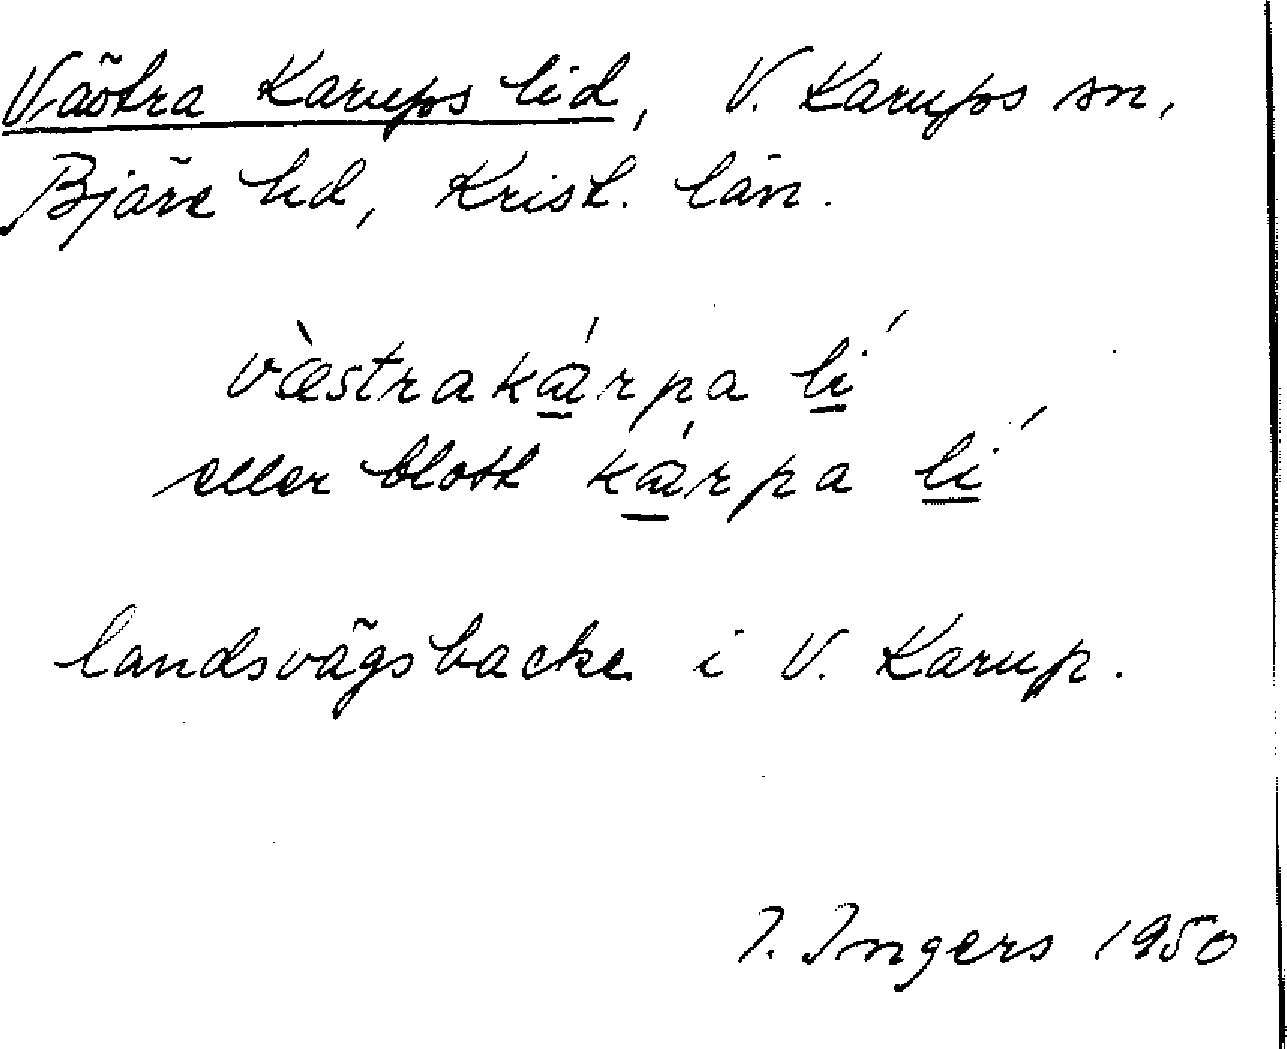 Västra Karups lid, V. Karups sn,
Bjäre hd, Krist. län.
væ̀strakǽ̲rpa lí̲
eller blott kǽ̲rpa lí̲
landsvägsbacke i V. Karup.
I. Ingers 1950